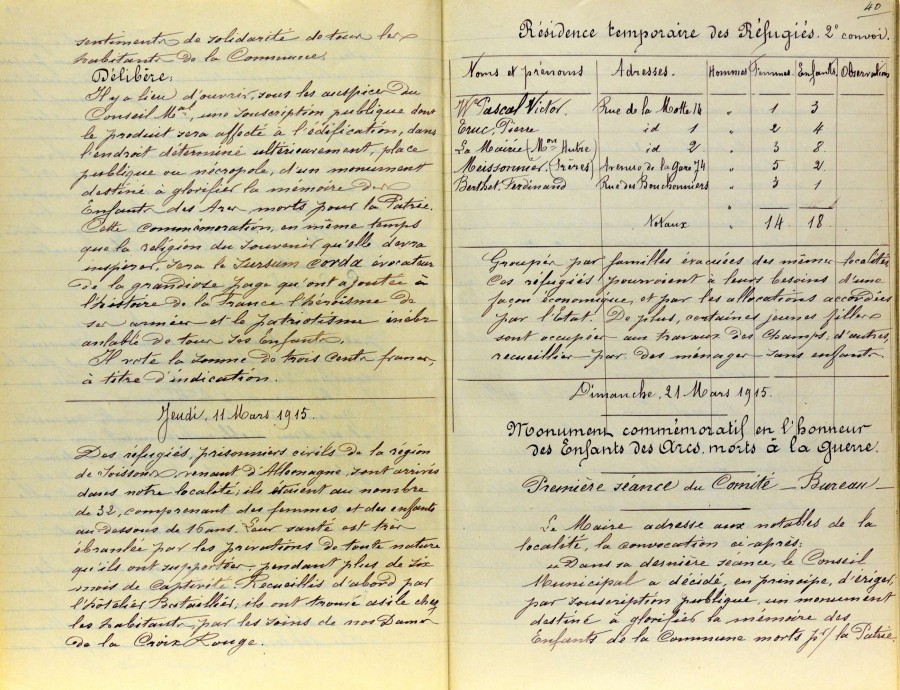 sentiments de solidarité de tous les
habitants de la Commune
Délibère:
Il y a lieu d'ouvrir, sous les auspices du
Conseil Mal, une souscription publique dont
le produit sera affecté à l'édification, dans
l'endroit déterminé ultérieurement, place
publique ou nécropole, d'un monument
destiné à glorifier la mémoire des
Enfants des Arcs morts pour la Patrie.
Cette commémoration, en même temps
que la religion du souvenir qu'elle devra
inspirer, sera le sursum corda évocateur
de la grandiose page qu'ont ajoutée à
l'histoire de la France l'héroïsme de
ses armées et le patriotisme inébr
anlable de tous ses Enfants.
Il vote la somme de trois cents francs,
à titre d'indication.
Jeudi, 11 Mars 1915.
Des réfugiés, prisonniers civils de la région
de Soissons, venant d'Allemagne, sont arrivés
dans notre localité; ils étaient au nombre
de 32, comprenant des femmes et des enfants
au-dessous de 16 ans. Leur santé est très
ébranlée par les privations de toute nature
qu'ils ont supportées pendant plus de six
mois de captivité. Recueillis d'abord par
l'hôtelier Bataillier, ils ont trouvé asile chez
les habitants, par les soins de nos Dames
de la Croix Rouge.
40
Résidence temporaire des Réfugiés. 2e convoi.
Noms et prénoms Adresses. Hommes Femmes Enfants Observations
Vve Pascal Victor. Rue de la Motte 14 " 1 3
Eruc, Pierre id 1 " 2 4
La Mairie (Mon Hubre id 2 " 3 8
Meissonnier. (Frères) Avenue de la Gare 74 " 5 2
Berthet. Ferdinand Rue des Bouchonniers " 3 1
Totaux " 14 18
Groupés par familles évacuées des mêmes localités,
Ces réfugiés pourvoient à leurs besoins d'une
façon économique, et par les allocations accordées
par l'Etat. De plus, certaines jeunes filles
sont occupées aux travaux des champs, d'autres,
recueillies par des ménages sans enfants
Dimanche, 21 Mars 1915.
Monument commémoratif en l'honneur
des Enfants des Arcs, morts à la Guerre.
Première séance du Comité - Bureau
Le Maire adresse aux notables de la
localité, la convocation ci-après:
"Dans sa dernière séance, le Conseil
Municipal a décidé, en principe, d'ériger,
par souscription publique, un monument
destiné à glorifier la mémoire des
Enfants de la Commune morts pr la Patrie.